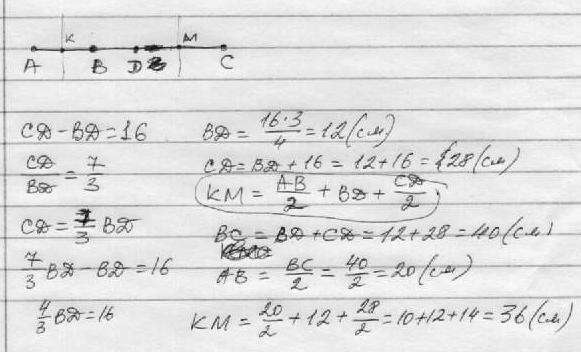 K M
A B D C
CD - BD = 16
CD/BD = 7/3
CD = 7/3 BD
7/3 BD - BD = 16
4/3 BD = 16
BD = 16·3/4 = 12 (см)
CD = BD + 16 = 12 + 16 = 28 (см)
KM = AB/2 + BD + CD/2
BC = BD + CD = 12 + 28 = 40 (см)
AB = BC/2 = 40/2 = 20 (см)
KM = 20/2 + 12 + 28/2 = 10 + 12 + 14 = 36 (см)